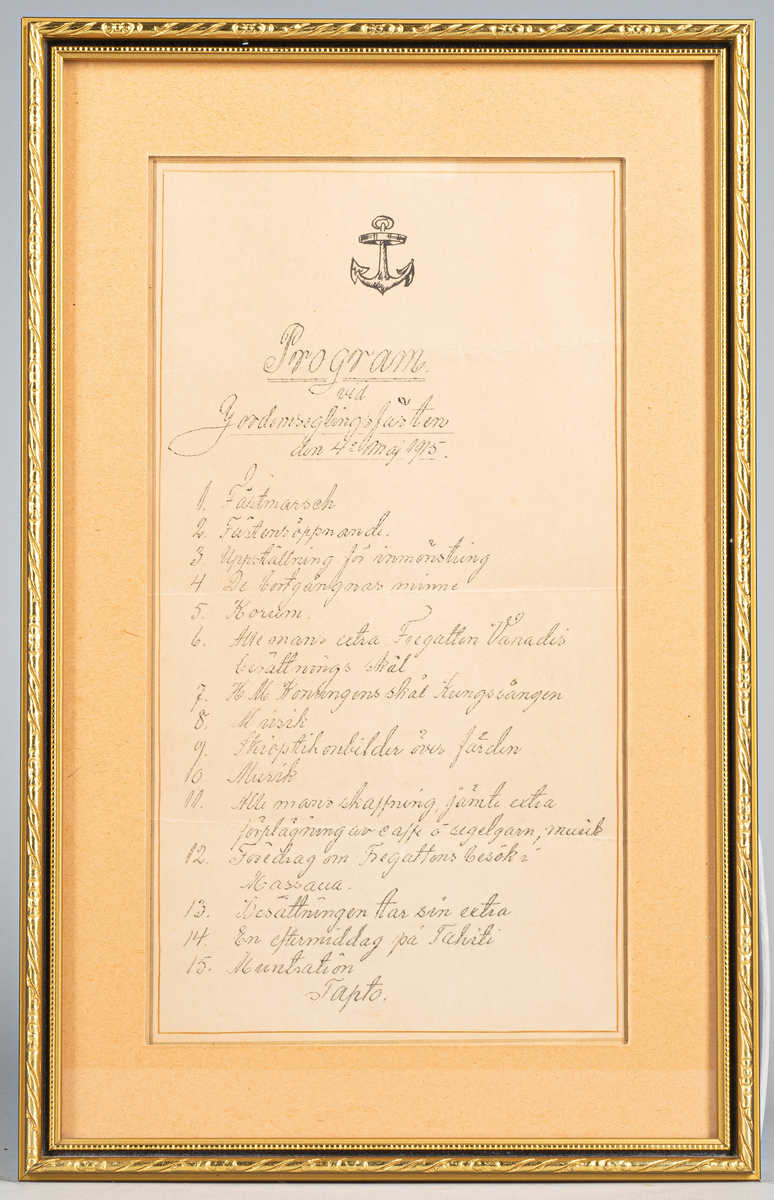 Program.
ved
Jordomseglingsfästen
den 4e Maj 1915.
1. Fästmarsch
2. Fästens öppnande.
3. Uppställning för inmönstring
4 De bortgångnas minne
5. Korum.
6. Alle mans extra Fregatten Vanadis
besättnings skål
7. H M Konungens skål Kungssången
8. Musik
9. Skioptikonbilder över färden
10 Musik
11. Alle mans skaffning, jämte extra
förplägning av caffe o segelgarn, musik
12. Föredrag om Fregattens besök i
Massaua.
13. Besättningen tar sin extra
14. En eftermiddag på Tahiti
15. Muntration
Tapto.